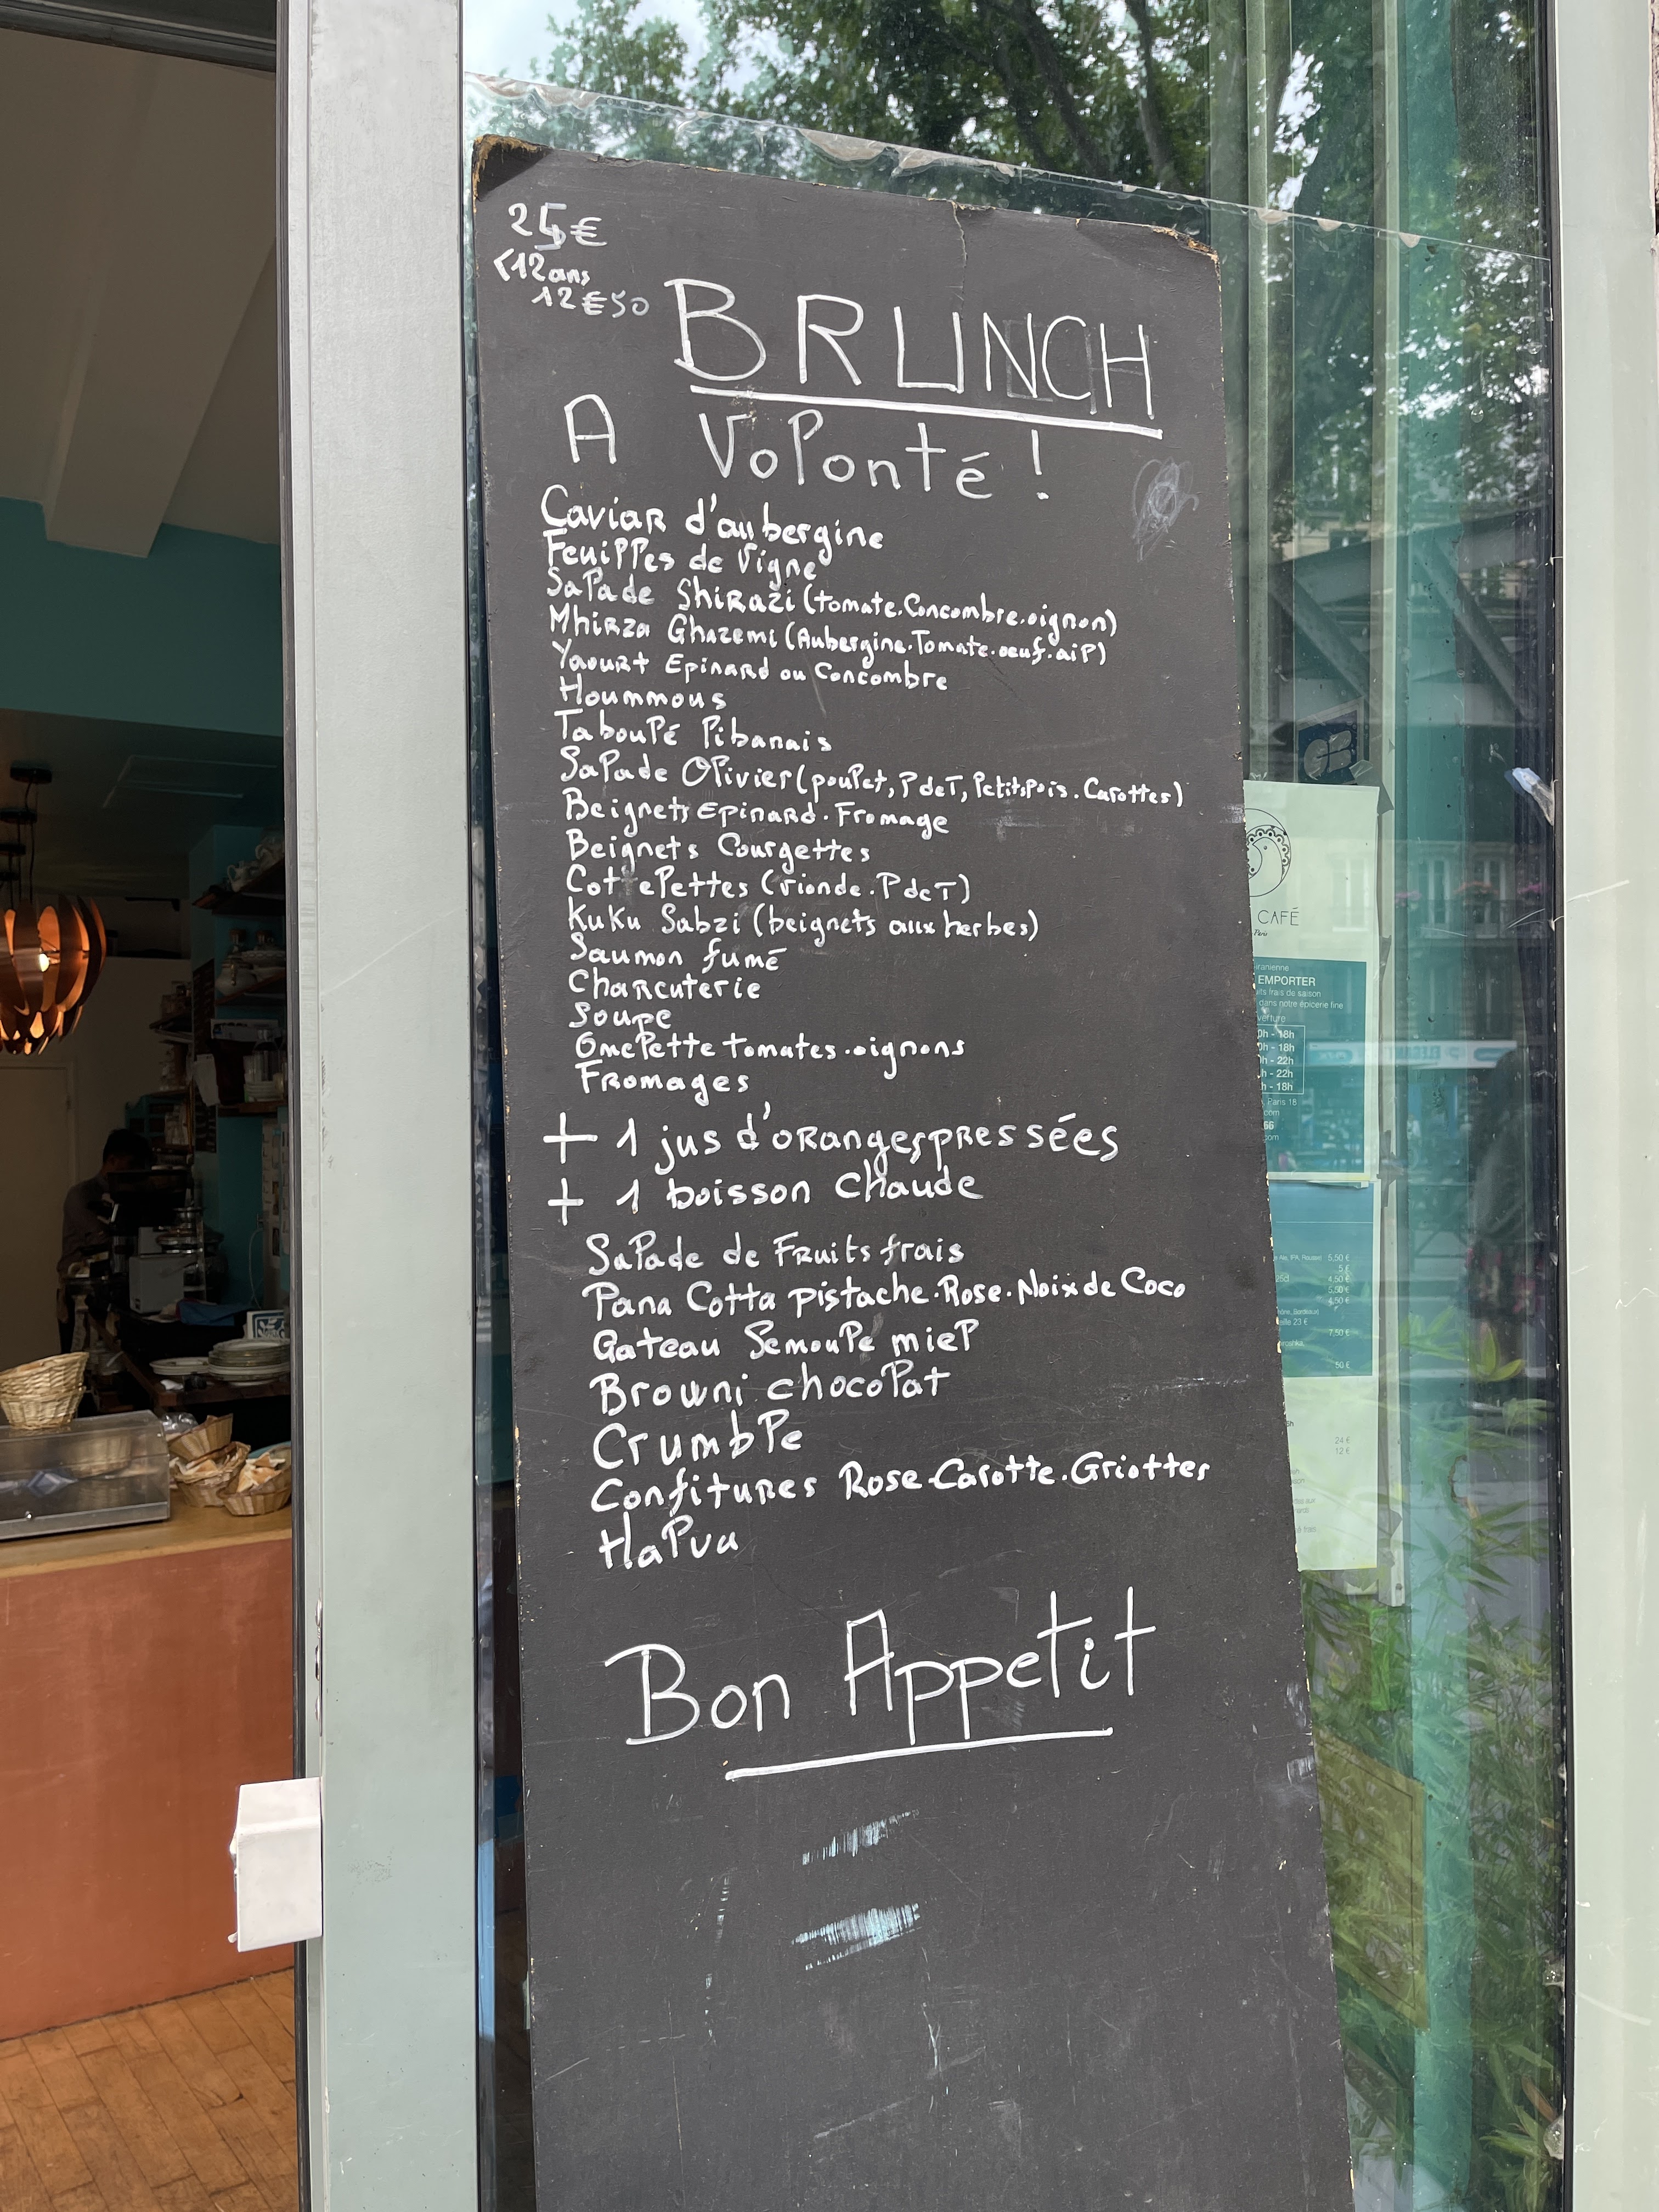 25€
<12ans
12€50
BRUNCH
A Volonté !
Caviar d'aubergine
Feuilles de Vigne
Salade Shirazi (tomate.Concombre.oignon)
Mhirza Ghazemi (Aubergine.Tomate.oeuf.ail)
Yaourt Epinard ou Concombre
Hoummous
Taboulé libanais
Salade Olivier (poulet, PdeT, Petits,Pois.Carottes)
Beignets Epinard.Fromage
Beignets Courgettes
Cottelettes (viande.PdeT)
Kuku Sabzi (beignets aux herbes)
Saumon fumé
Charcuterie
Soupe
Omelette tomates.oignons
Fromages
+ 1 jus d'oranges pressées
+ 1 boisson chaude
Salade de Fruits frais
Pana Cotta pistache.Rose.Noix de Coco
Gateau Semoule miel
Browni chocolat
Crumble
Confitures Rose-Carotte.Griottes
Halva
Bon Appetit
CAFÉ
Paris
EMPORTER
dans notre épicerie fine
- 18h
- 18h
- 22h
- 22h
- 18h
Paris 18
5,50 €
5 €
4,50 €
5,50 €
4,50 €
23 €
7,50 €
50 €
24 €
12 €